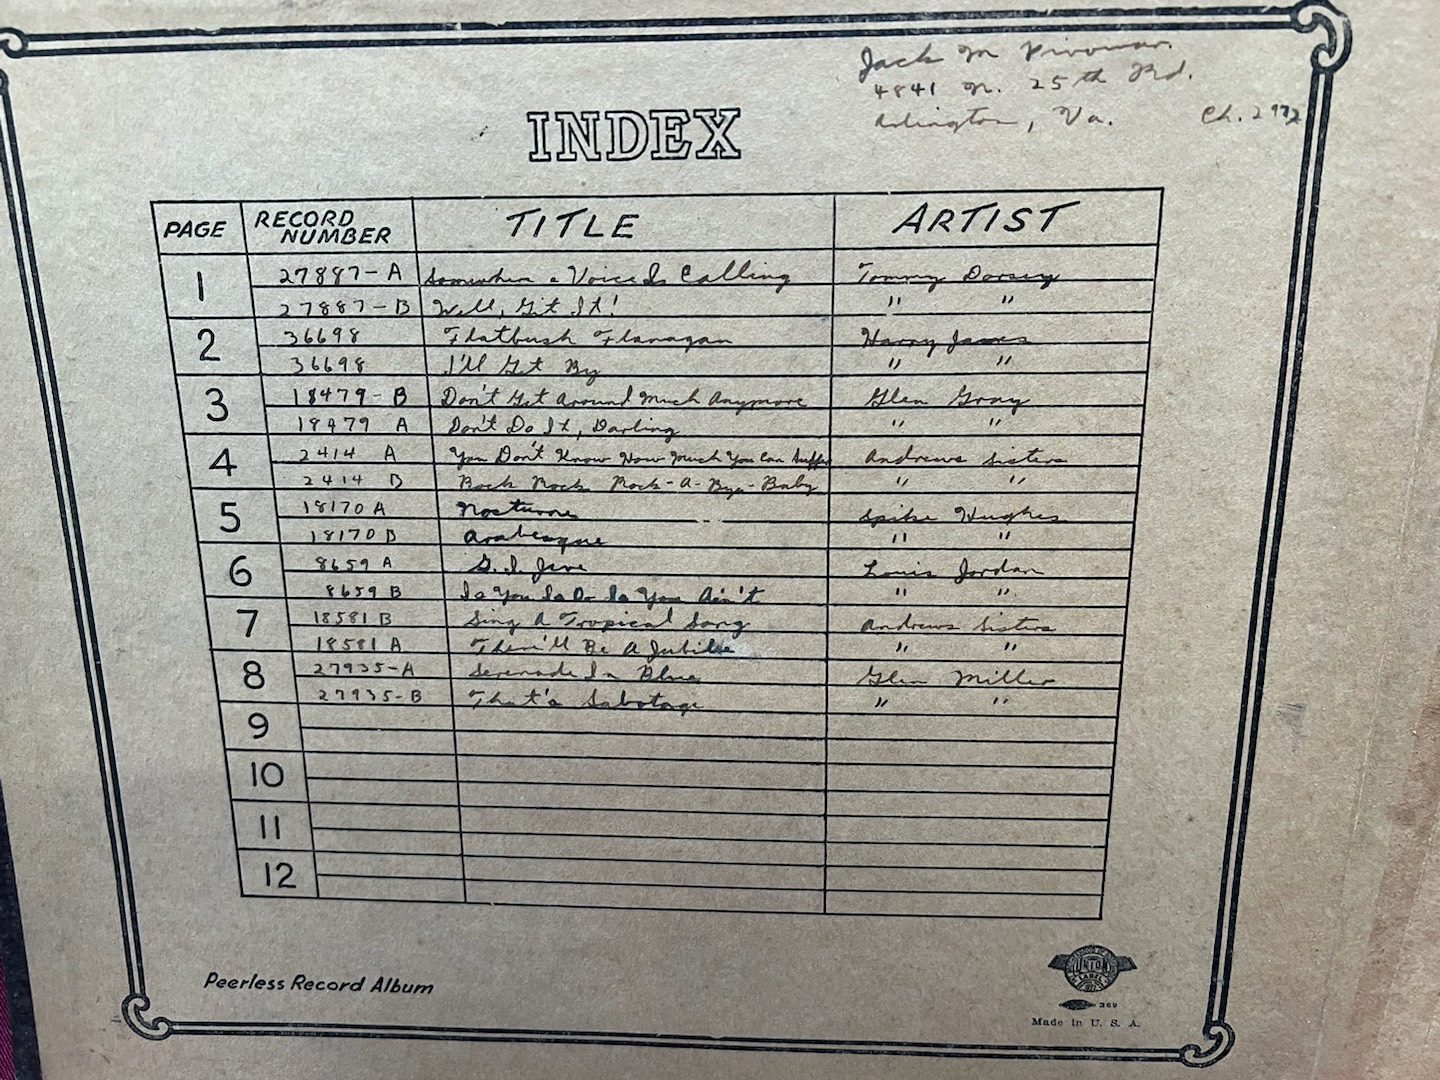 Jack M
4841 N. 25th Rd.
Arlington, Va. Ch. 2972
INDEX
PAGE RECORD NUMBER TITLE ARTIST
1 27887-A Somewhere a Voice Is Calling Tommy Dorsey
27887-B Well, Git It! " "
2 36698 Flatbush Flanagan Harry James
36698 I'll Get By " "
3 18479-B Don't Get Around Much Anymore Glen Gray
18479 A Don't Do It, Darling " "
4 2414 A You Don't Know How Much You Can Suffer Andrews Sisters
2414 B Rock Rock Rock-A-Bye-Baby " "
5 18170 A Nocturne Spike Hughes
18170 B Arabesque " "
6 8659 A G.I. Jive Louis Jordan
8659 B Is You Is Or Is You Ain't " "
7 18581 B Sing A Tropical Song Andrews Sisters
18581 A There'll Be A Jubilee " "
8 27935-A Serenade In Blue Glen Miller
27935-B That's Sabotage " "
9
10
11
12
Peerless Record Album
UNION
LABEL
369
Made in U. S. A.